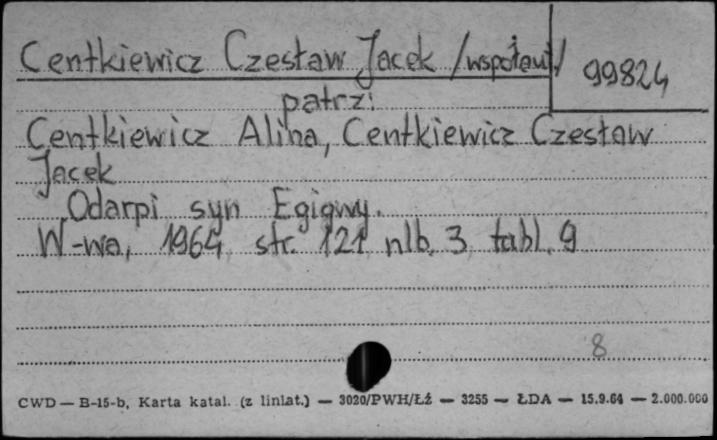 Centkiewicz Czesław Jacek /współaut/
99824
patrz:
Centkiewicz Alina, Centkiewicz Czesław
Jacek
Odarpi syn Egigwy.
W-wa, 1964 str. 121 nlb. 3 tabl. 9
8
CWD — B-15-b, Karta katal. (z liniat.) — 3020/PWH/Łź — 3255 — ŁDA — 15.9.64 — 2.000.000